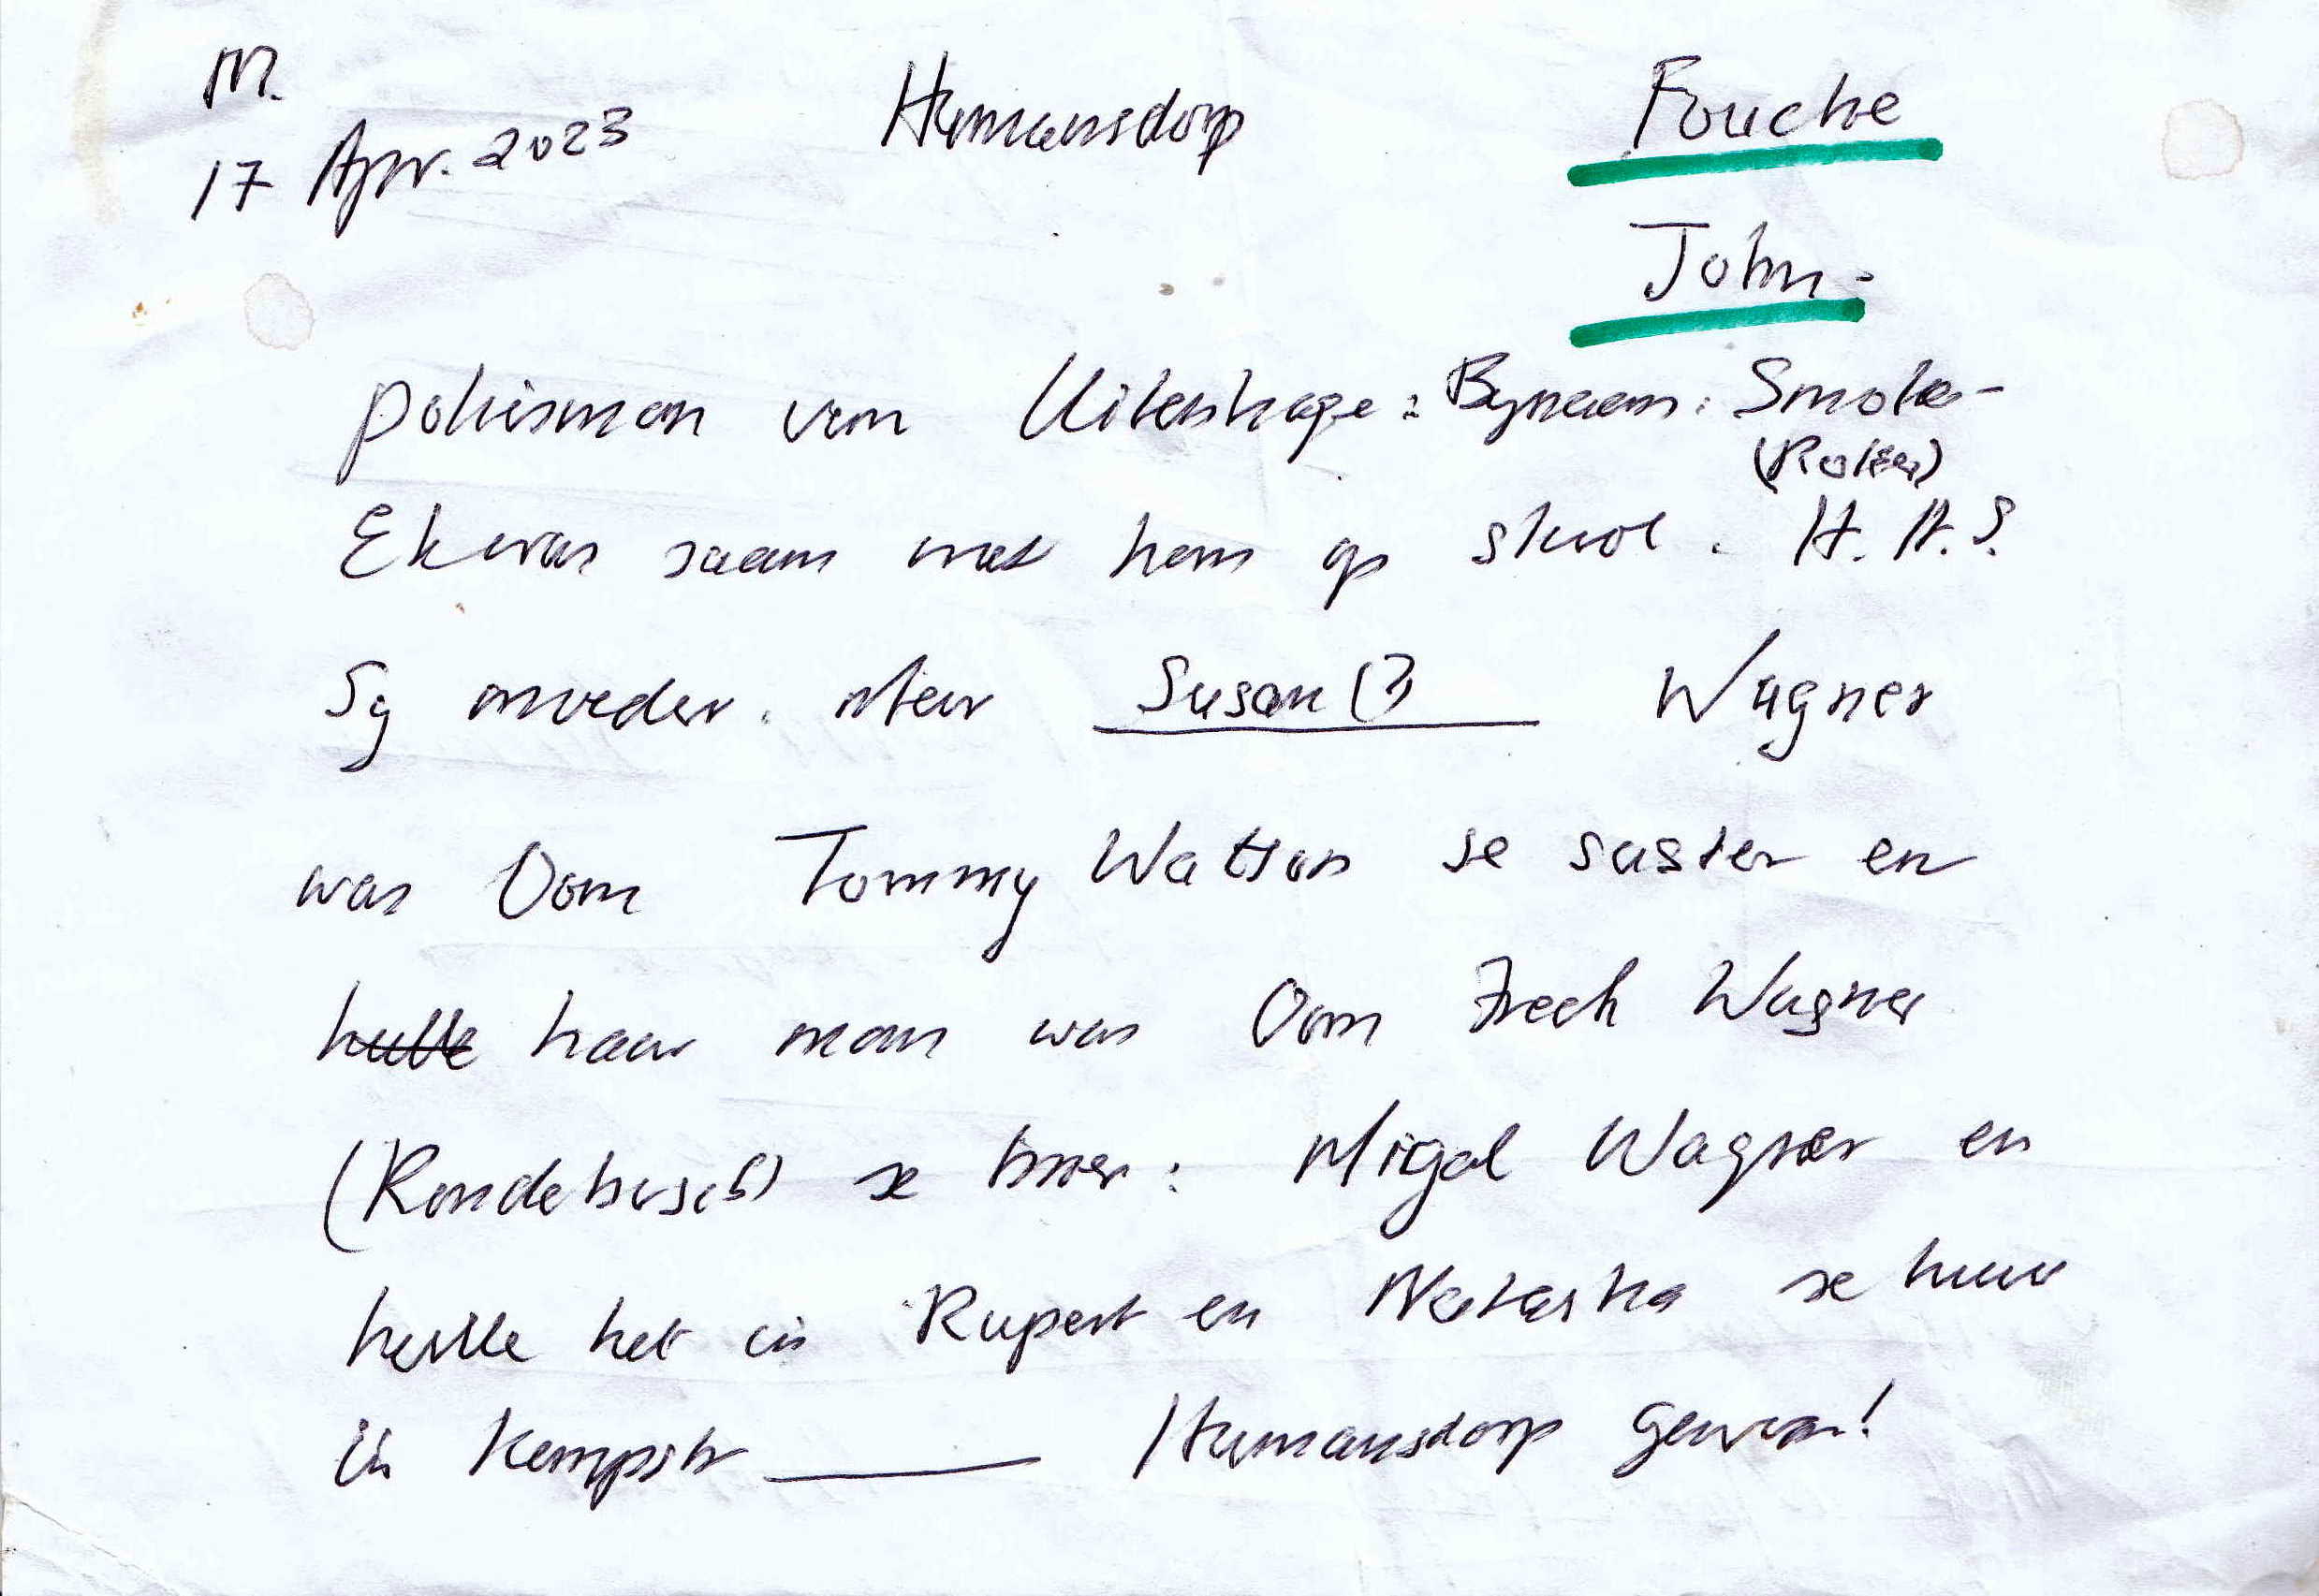 M.
17 Apr. 2023 Humansdorp Fouche
John.
polisman van Uitenhage: Bynaam: Smoke-
(Roker)
Ek was saam met hem op skool. H.H.S.
Sy moeder. Mev Susan (?) Wagner
was Oom Tommy Watson se suster en
hulle haar man was Oom Freek Wagner
(Rondebosch) se broer: Migal Wagner en
hulle het in Rupert en Natasha se huis
in Kempstr Humansdorp gewoon!